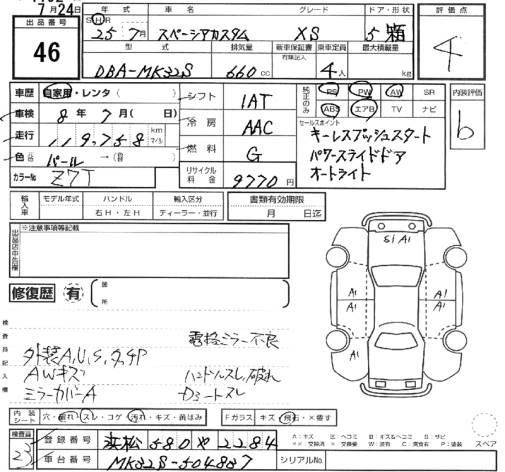 7月24日
出品番号 46
年式 車名 グレード ドア・形状
S・H・R 25年 7月 スペーシアカスタム XS 5
評価点 4
型式 排気量 新車保証書 有限記入 乗車定員 最大積載量
DBA-MK32S 660cc 4人 kg
車歴 自家用・レンタ( )
車検 8年 7月( 日)
走行 119,758 km マイル
色 パール →(自 )
カラーNo Z7T
シフト 1AT
冷房 AAC
燃料 G
リサイクル料金 9770円
純正のみ PS PW AW SR
ABS エアB TV ナビ
セールスポイント
キーレスプッシュスタート
パワースライドドア
オートライト
内装評価 b
輸入車 モデル年式 ハンドル 輸入区分 書類有効期限
右H・左H ディーラー・並行 月 日迄
※注意事項等記載
修復歴 有 箇所
検査員記入欄
電格ミラー不良
外装A,U,S,タ,チP
AWキズ ハンドルスレ,破れ
ミラーカバーA Dシートスレ
S1 A1
A1 A1
A1 A1
内装シート 穴・破れ・スレ・コゲ・汚れ・キズ・黄ばみ
Fガラス キズ・飛石・×要す
スペア
検査員 23
登録番号 浜松 580 や 2284
車台番号 MK32S-504887
シリアルNo.